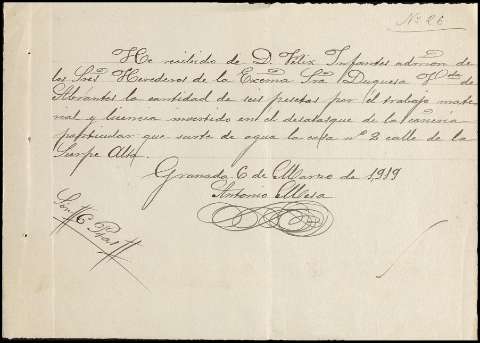 Nº 26
He recibido de D. Felix Infantes admon de
los Sres Herederos de la Excma Sra Duquesa Vda de
Abrantes la cantidad de seis pesetas por el trabajo mate-
rial y licencia invertido en el desatasque de la cañeria
particular que surte de agua la casa nº 2 calle de la
Sierpe Alta.
Granada 6 de Marzo de 1919
Antonio Mesa
Son 6 Ptas